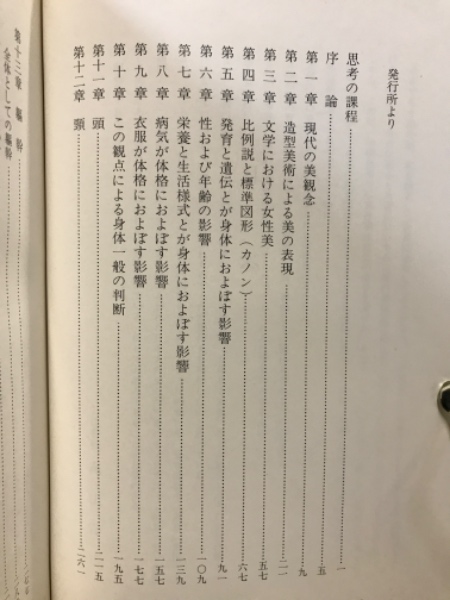 発行所より
思考の課程 一
序論 五
第一章 現代の美観念 九
第二章 造型美術による美の表現 二一
第三章 文学における女性美 五七
第四章 比例説と標準図形（カノン） 六七
第五章 発育と遺伝とが身体におよぼす影響 九一
第六章 性および年齢の影響 一〇九
第七章 栄養と生活様式とが身体におよぼす影響 一三九
第八章 病気が体格におよぼす影響 一五七
第九章 衣服が体格におよぼす影響 一七七
第十章 この観点による身体一般の判断 一九五
第十一章 頭 二一五
第十二章 頸 二六一
第十三章 軀幹
全体としての軀幹